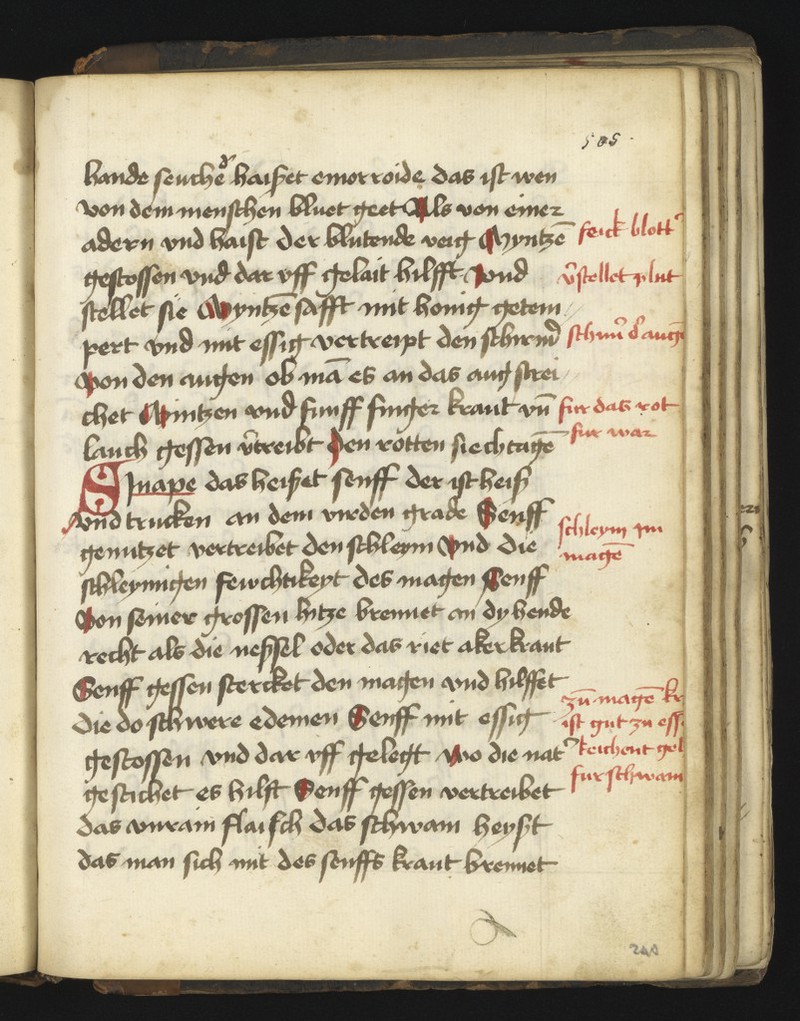 505
hande seuch&#x65; haisset emorroide das ist wen
von dem menschen bluet geet Als von einer
adern vnd haist der blutende veig Myntzē
gestossen vnd dar vff gelait hilfft vnd
stellet sie Myntzē safft mit honig getem
pert vnd mit essig vertreipt den schirm
von den augen ob mā es an das aug strei
chet Mintzen vnd funff finger kraut vn̄
lauch gessen v̄treibt den rotten siechtagē
Sinape das heisset senff der ist heiß
vnd trucken an dem virden grade Senff
genutzet vertreibet den schleym vnd die
schleymigen fewchtikeyt des magen Senff
von seiner grossen hitze brennet an dy hende
recht als die nessel oder das riet akerkraut
Senff gessen stercket den magen vnd hilffet
die do schwere edemen Senff mit essig
gestossen vnd dar vff gelegt wo die nat
gestichet es hilft Senff gessen vertreibet
das vnrain flaisch das schwam heyst
das man sich mit des senffs kraut brennet
feick blott
v̄stellet plut
fur das rot
fur war
schleym im
magē
zū magē
ist gut zu
keichent
fur schwam
240